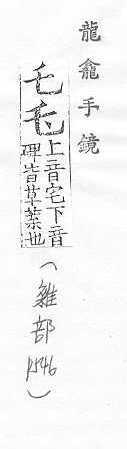 龍龕手鏡
乇
上音宅下音
碑皆草葉也
(雜部 P546)